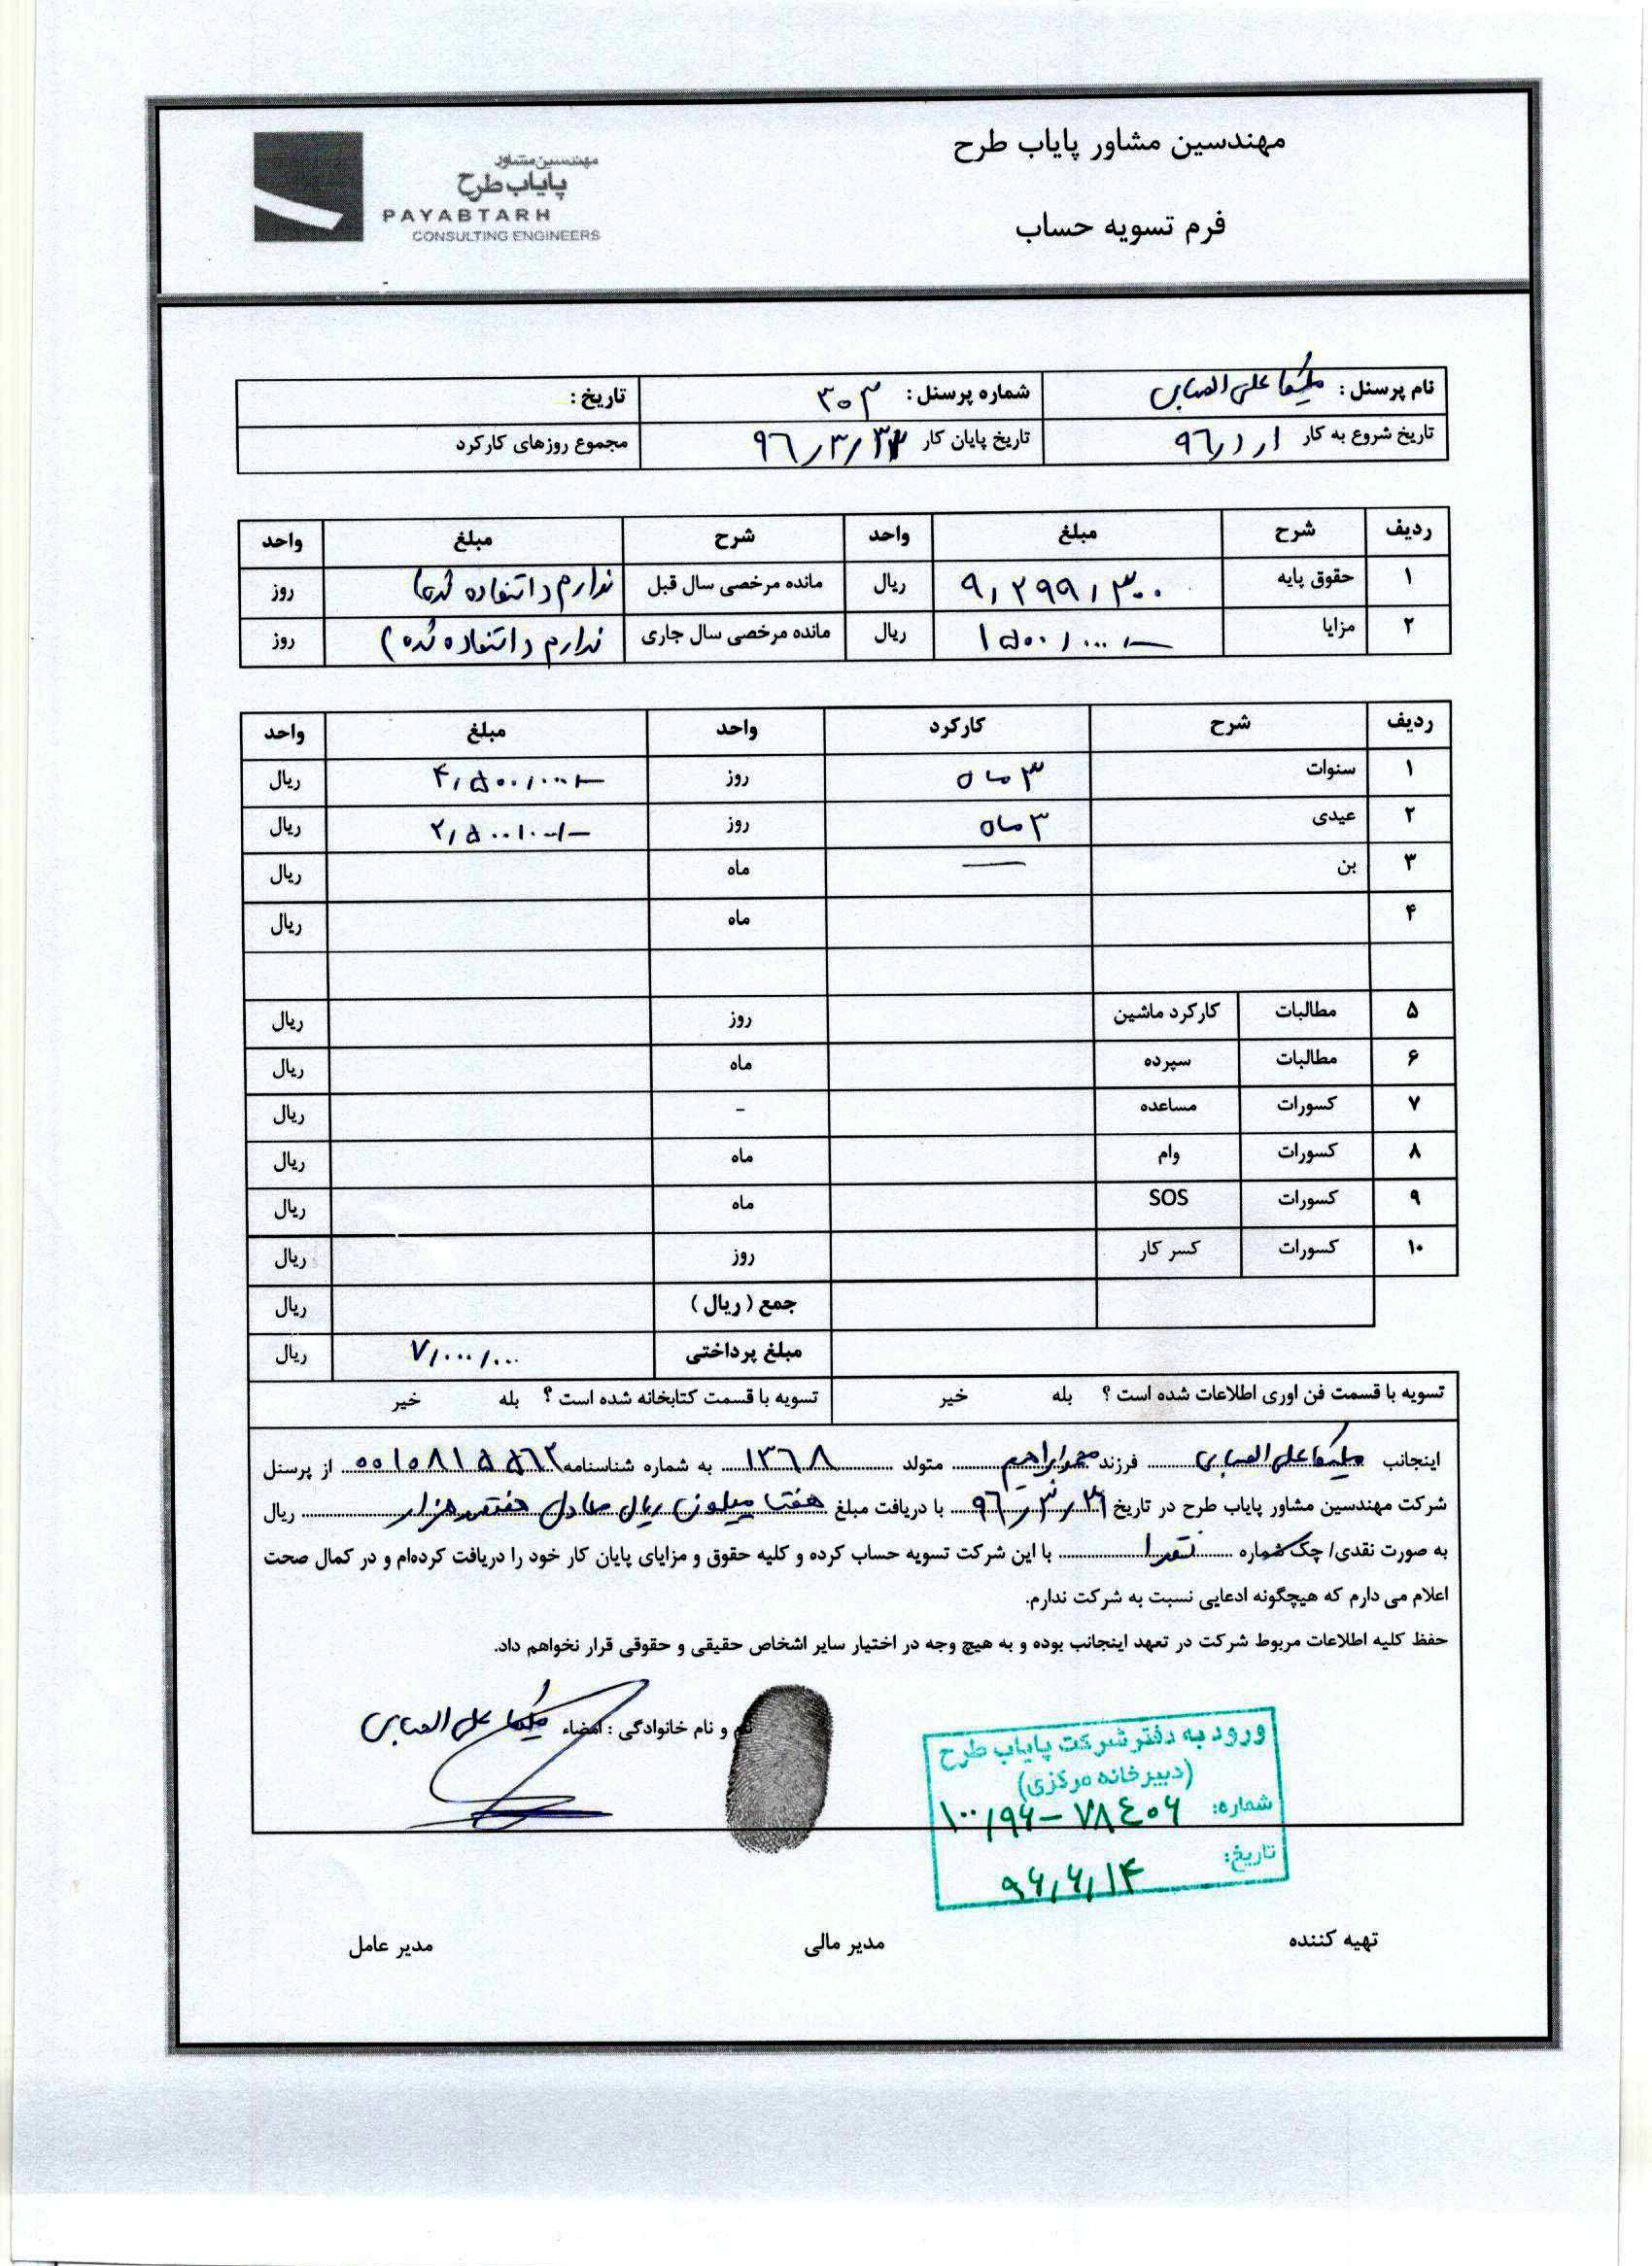 مهندسین مشاور پایاب طرح
فرم تسویه حساب
مهندسین مشاور
پایاب طرح
PAYABTARH
CONSULTING ENGINEERS
نام پرسنل : ملیکا علی الحسابی شماره پرسنل : ۳۰۳ تاریخ :
تاریخ شروع به کار ۹۶/۱/۱ تاریخ پایان کار ۹۶/۳/۳۱ مجموع روزهای کارکرد
ردیف شرح مبلغ واحد شرح مبلغ واحد
۱ حقوق پایه ۹,۲۹۹,۳۰۰ ریال مانده مرخصی سال قبل ندارم (استفاده شده) روز
۲ مزایا ۱۵۰۰,۰۰۰,- ریال مانده مرخصی سال جاری ندارم (استفاده شده) روز
ردیف شرح کارکرد واحد مبلغ واحد
۱ سنوات ۳ ماه روز ۴,۵۰۰,۰۰۰,- ریال
۲ عیدی ۳ ماه روز ۲,۵۰۰,۰۰۰,- ریال
۳ بن — ماه ریال
۴ ماه ریال
۵ مطالبات کارکرد ماشین روز ریال
۶ مطالبات سپرده ماه ریال
۷ کسورات مساعده - ریال
۸ کسورات وام ماه ریال
۹ کسورات SOS ماه ریال
۱۰ کسورات کسر کار روز ریال
جمع ( ریال ) ریال
مبلغ پرداختی ۷,۰۰۰,۰۰۰ ریال
تسویه با قسمت فن اوری اطلاعات شده است ؟ بله خیر تسویه با قسمت کتابخانه شده است ؟ بله خیر
اینجانب ملیکا علی الحسابی فرزند محمدابراهیم متولد ۱۳۶۸ به شماره شناسنامه ۰۰۱۰۸۱۵۵۶۲ از پرسنل
شرکت مهندسین مشاور پایاب طرح در تاریخ ۹۶/۳/۳۱ با دریافت مبلغ هفت میلیون ریال معادل هفتصد هزار ریال
به صورت نقدی/ چک شماره نقدا با این شرکت تسویه حساب کرده و کلیه حقوق و مزایای پایان کار خود را دریافت کرده‌ام و در کمال صحت
اعلام می دارم که هیچگونه ادعایی نسبت به شرکت ندارم.
حفظ کلیه اطلاعات مربوط شرکت در تعهد اینجانب بوده و به هیچ وجه در اختیار سایر اشخاص حقیقی و حقوقی قرار نخواهم داد.
نام و نام خانوادگی : امضاء ملیکا علی الحسابی
ورود به دفتر شرکت پایاب طرح
(دبیرخانه مرکزی)
شماره: ۱۰۰/۹۶-۷۸۴۰۶
تاریخ: ۹۶/۶/۱۴
تهیه کننده مدیر مالی مدیر عامل